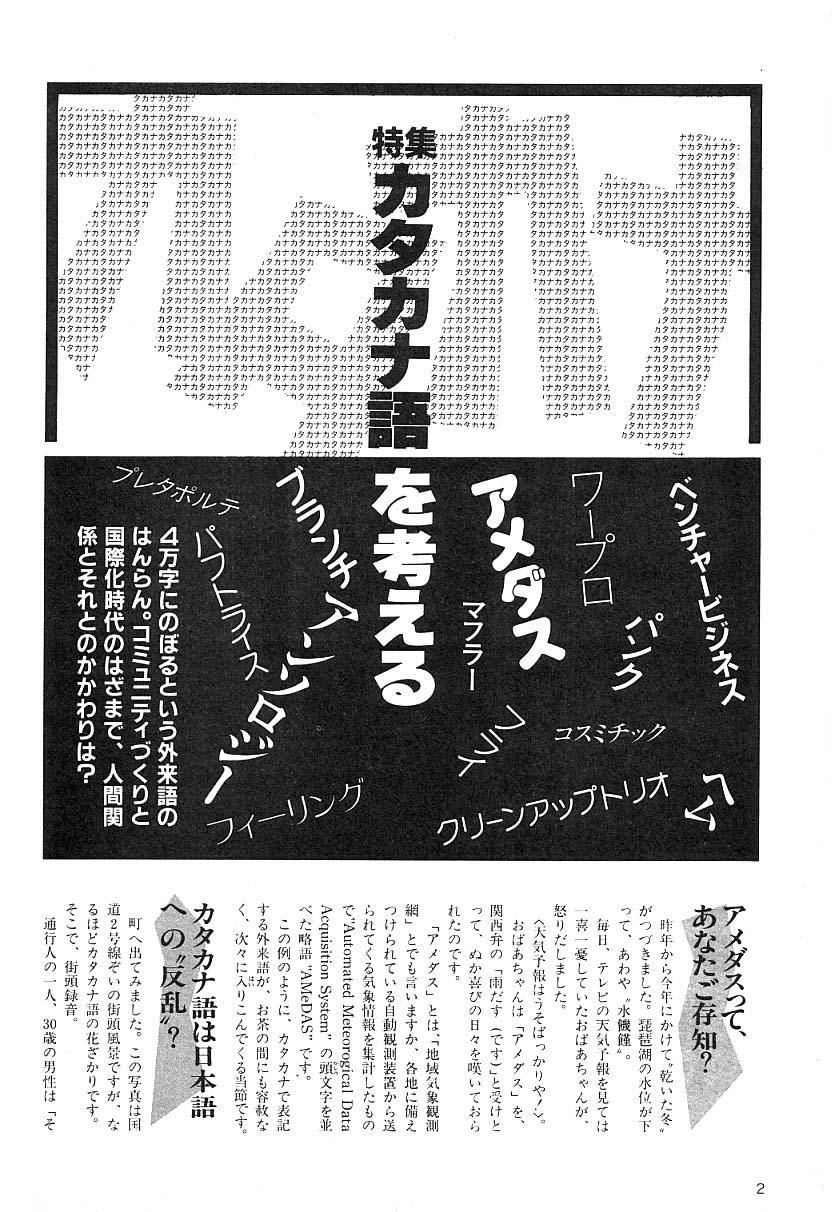 特集
カタカナ語
を考える
ベンチャービジネス
ワープロ
パンク
アメダス
マフラー
コスミチック
フライ
クリーンアップトリオ
ヘマ
ブランチ
アンソロジー
プレタポルテ
パフトライス
フィーリング
4万字にのぼるという外来語の
はんらん。コミュニティづくりと
国際化時代のはざまで、人間関
係とそれとのかかわりは?
アメダスって、
あなたご存知?
昨年から今年にかけて〝乾いた冬〟
がつづきました。琵琶湖の水位が下
って、あわや〝水饑饉〟。
毎日、テレビの天気予報を見ては
一喜一憂していたおばあちゃんが、
怒りだしました。
〈天気予報はうそばっかりや!〉。
おばあちゃんは「アメダス」を、
関西弁の「雨だす(ですご)と受けと
って、ぬか喜びの日々を嘆いておら
れたのです。
「アメダス」とは、「地域気象観測
網」とでも言いますか、各地に備え
つけられている自動観測装置から送
られてくる気象情報を集計したもの
で"Automated Meteorogical Data
Acquisition System" の頭文字を並
べた略語"AMeDAS"です。
この例のように、カタカナで表記
する外来語が、お茶の間にも容赦な
く、次々に入りこんでくる当節です。
カタカナ語は日本語
への〝反乱〟?
町へ出てみました。この写真は国
道2号線ぞいの街頭風景ですが、な
るほどカタカナ語の花ざかりです。
そこで、街頭録音。
通行人の一人、30歳の男性は「そ
2